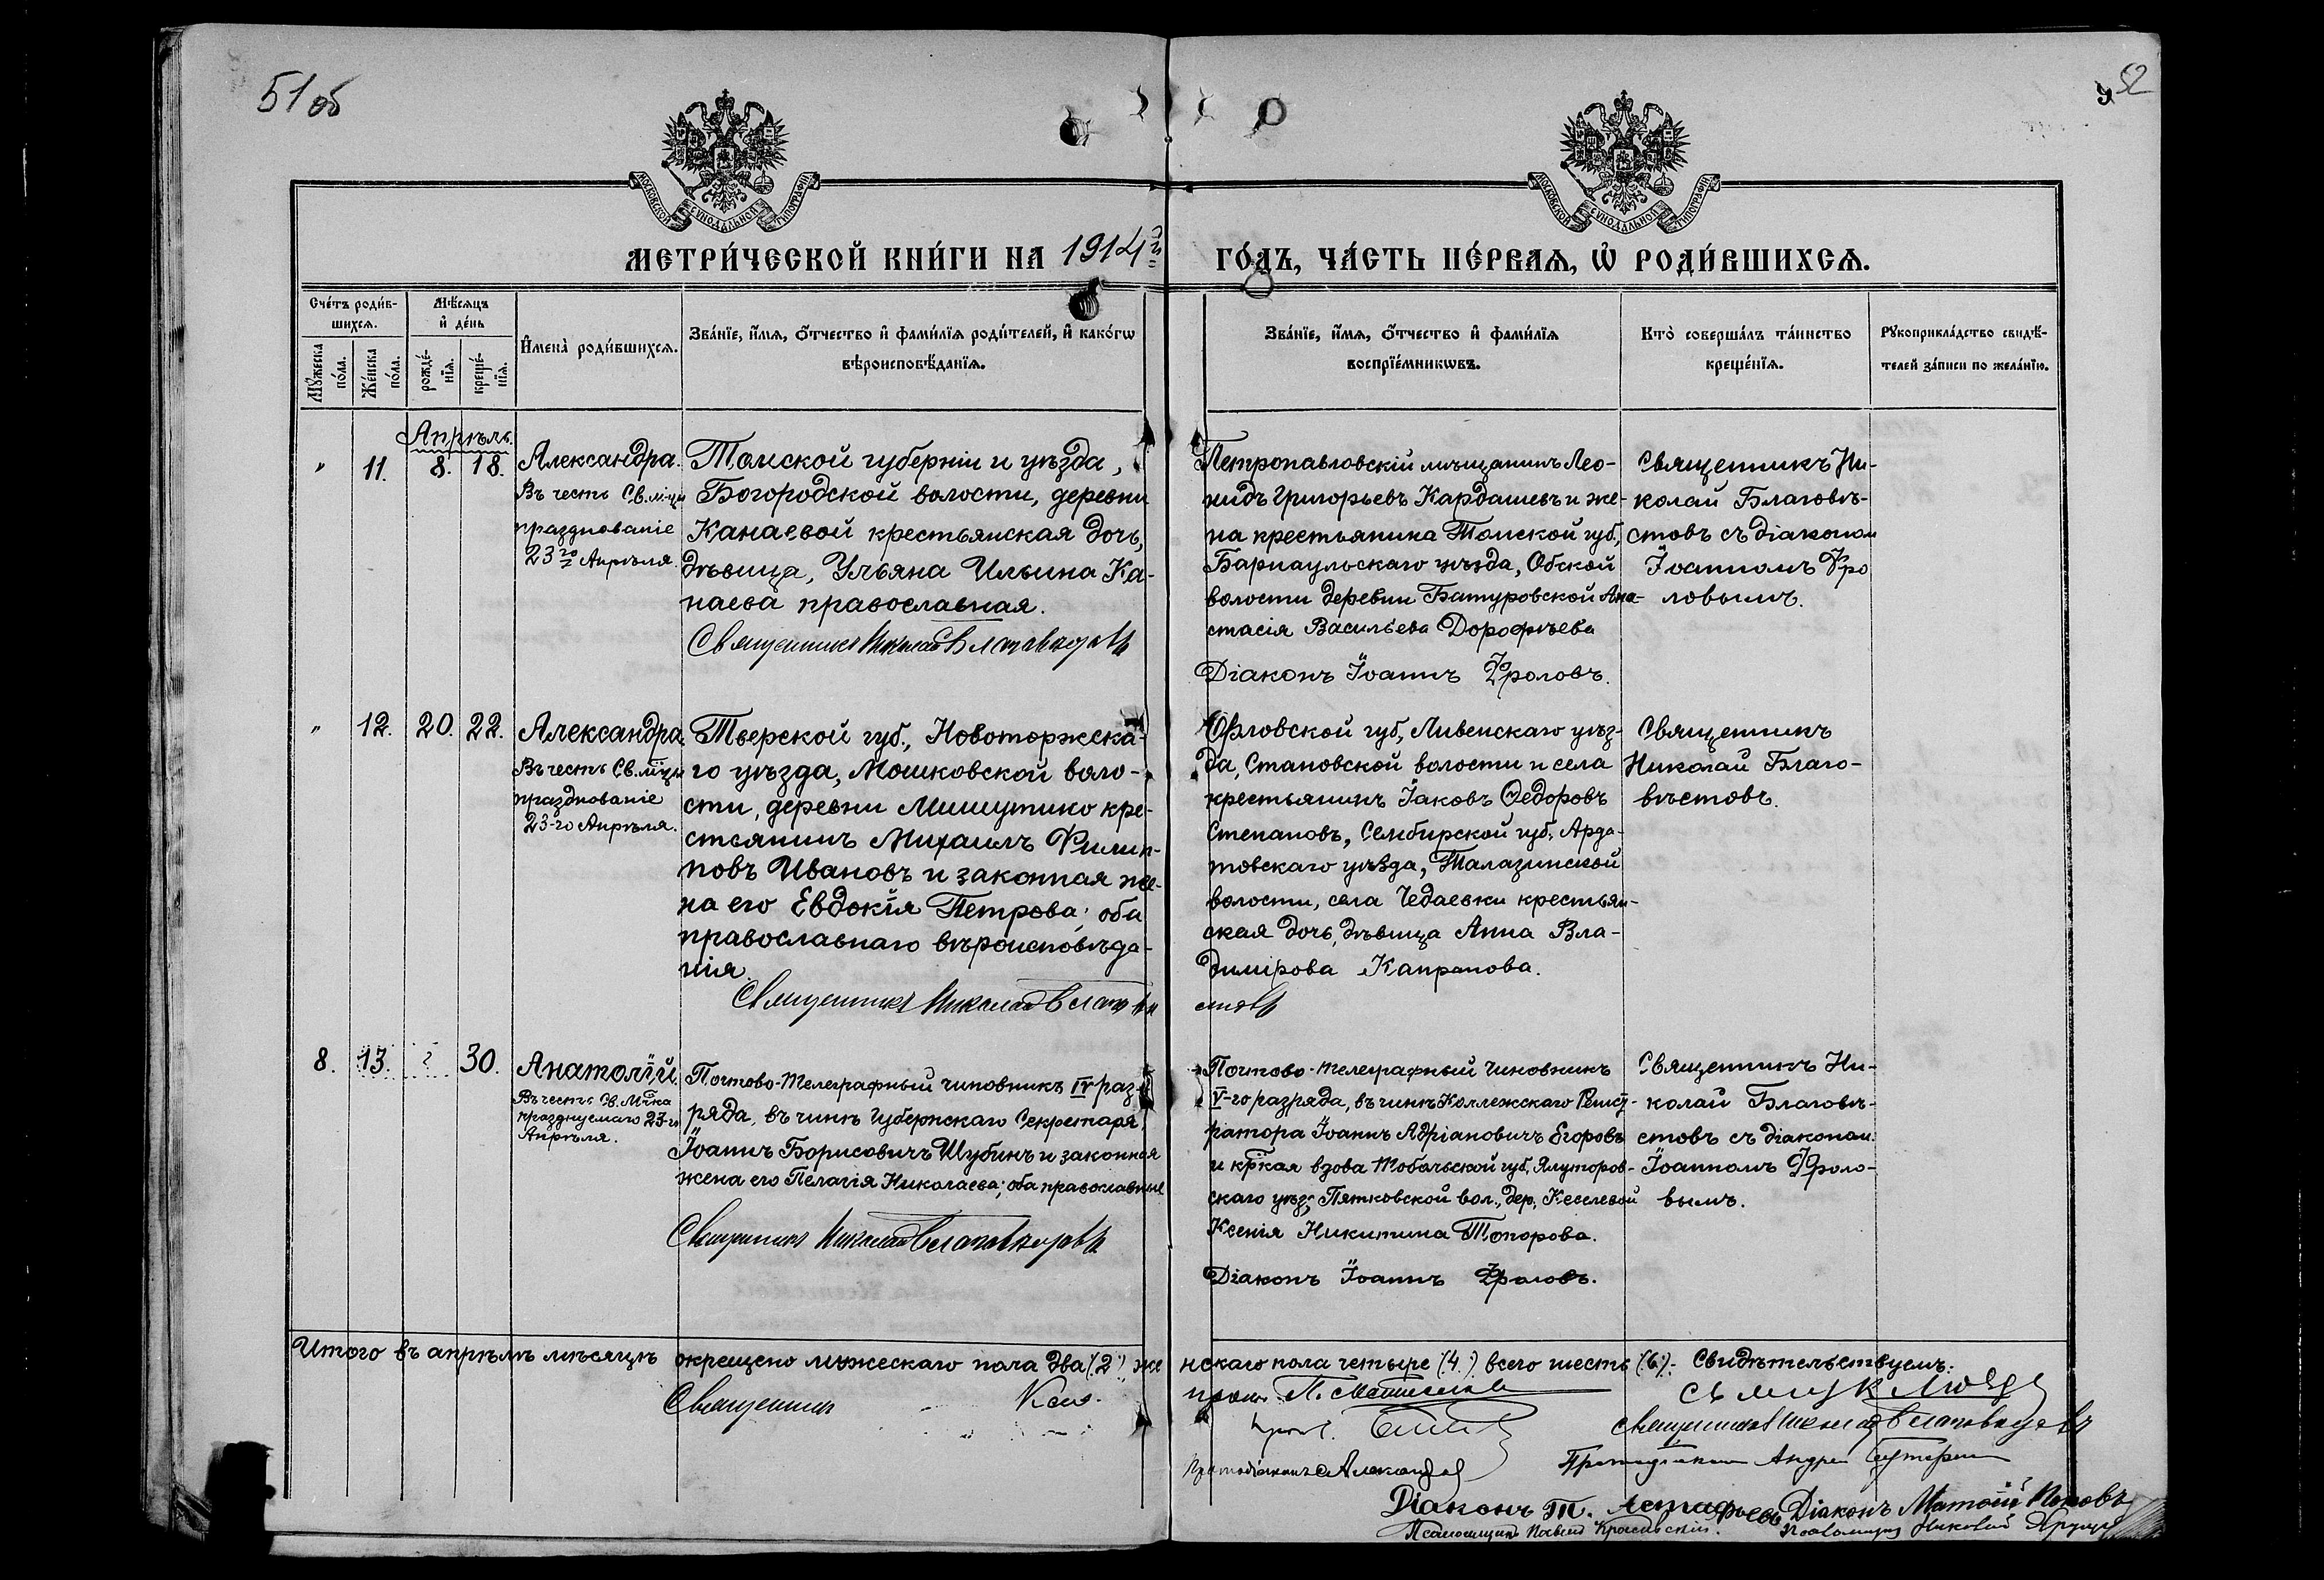 51 об
52
МОСКОВСКОЙ СУНОДАЛЬНОЙ ТИПОГРАФІИ
МОСКОВСКОЙ СУНОДАЛЬНОЙ ТИПОГРАФІИ
МЕТРИ́ЧЕСКОЙ КНИ́ГИ НА 1914й ГО́ДЪ, ЧА́СТЬ ПЕ́РВАѦ, Ѽ РОДИ́ВШИХСѦ.
Сче́тъ роди́в-
шихсѧ.
Мѣ́сѧцъ
и҆ де́нь
Мꙋ́жеска
по́ла.
Же́нска
по́ла.
рожде́-
нїѧ.
креще́-
нїѧ.
И҆мена̀ роди́вшихсѧ.
Зва́нїе, и҆́мѧ, ѻ҆́тчество и҆ фами́лїѧ роди́телей, и҆ како́гѡ
вѣроисповѣ́данїѧ.
Зва́нїе, и҆́мѧ, ѻ҆́тчество и҆ фами́лїѧ
воспрїе́мникѡвъ.
Кто̀ соверша́лъ та́инство
креще́нїѧ.
Рꙋкоприкла́дство свидѣ́-
телей за́писи по жела́нїю.
Апрѣль.
" 11. 8. 18.
Александра.
Въ честь Св. м-цы
празднованіе
23го Апрѣля.
Томской губерніи и уѣзда,
Богородской волости, деревни
Канаевой крестьянская дочь,
дѣвица, Ульяна Ильина Ка-
наева православная.
Священникъ Николай Благовѣстовъ
Петропавловскій мѣщанинъ Лео-
нидъ Григорьевъ Кардашевъ и же-
на крестьянина Томской губ,
Барнаульскаго уѣзда, Обской
волости деревни Батуровской Ана-
стасія Васильева Дорофѣева
Діаконъ Іоаннъ Фроловъ.
Священникъ Ни-
колай Благовѣ-
стовъ съ діакономъ
Іоанномъ Фро
ловымъ.
" 12. 20. 22.
Александра.
Въ честь Св. м-цы
празднованіе
23-го Апрѣля.
Тверской губ., Новоторжска-
го уѣзда, Мошковской воло-
сти, деревни Мишутино кре-
стьянинъ Михаилъ Филип-
повъ Ивановъ и законная же-
на его Евдокія Петрова; оба
православнаго вѣроисповѣда-
нія.
Священникъ Николай Благовѣ
стовъ
Орловской губ, Ливенскаго уѣз-
да, Становской волости и села
крестьянинъ Іаковъ Ѳедоровъ
Степановъ, Симбирской губ, Арда-
товскаго уѣзда, Талазинской
волости, села Чедаевки крестьян-
ская дочь, дѣвица Анна Вла-
димірова Капранова.
Священникъ
Николай Благо-
вѣстовъ.
8. 13. 30.
Анатолій.
Въ честь Св. М-ка
празднуемаго 23-го
Апрѣля.
Почтово-Телеграфный чиновникъ IV раз-
ряда, въ чинѣ Губернскаго Секретаря,
Іоаннъ Борисовичъ Шубинъ и законная
жена его Пелагія Николаева; оба православные
Священникъ Николай Благовѣстовъ
Почтово-телеграфный чиновникъ
V-го разряда, въ чинѣ Коллежскаго Регист-
ратора Іоаннъ Адріановичъ Егоровъ
и кр-кая вдова Тобольской губ, Ялуторов-
скаго уѣз, Пятковской вол., дер. Киселевой
Ксенія Никитина Топорова.
Діаконъ Іоаннъ Фроловъ.
Священникъ Ни-
колай Благовѣ-
стовъ съ діаконом
Іоанномъ Фроло-
вымъ.
Итого въ апрѣлѣ мѣсяцѣ окрещено мужескаго пола два (2), женскаго пола четыре (4) всего шесть (6). Свидѣтельствуемъ:
Священникъ
Священникъ Николай Благовѣстовъ
Протодіаконъ Александръ
Протодіаконъ Андрей
Діаконъ Т. Астафьевъ Діаконъ Матѳій Поповъ
Псаломщикъ
Псаломщикъ Николай